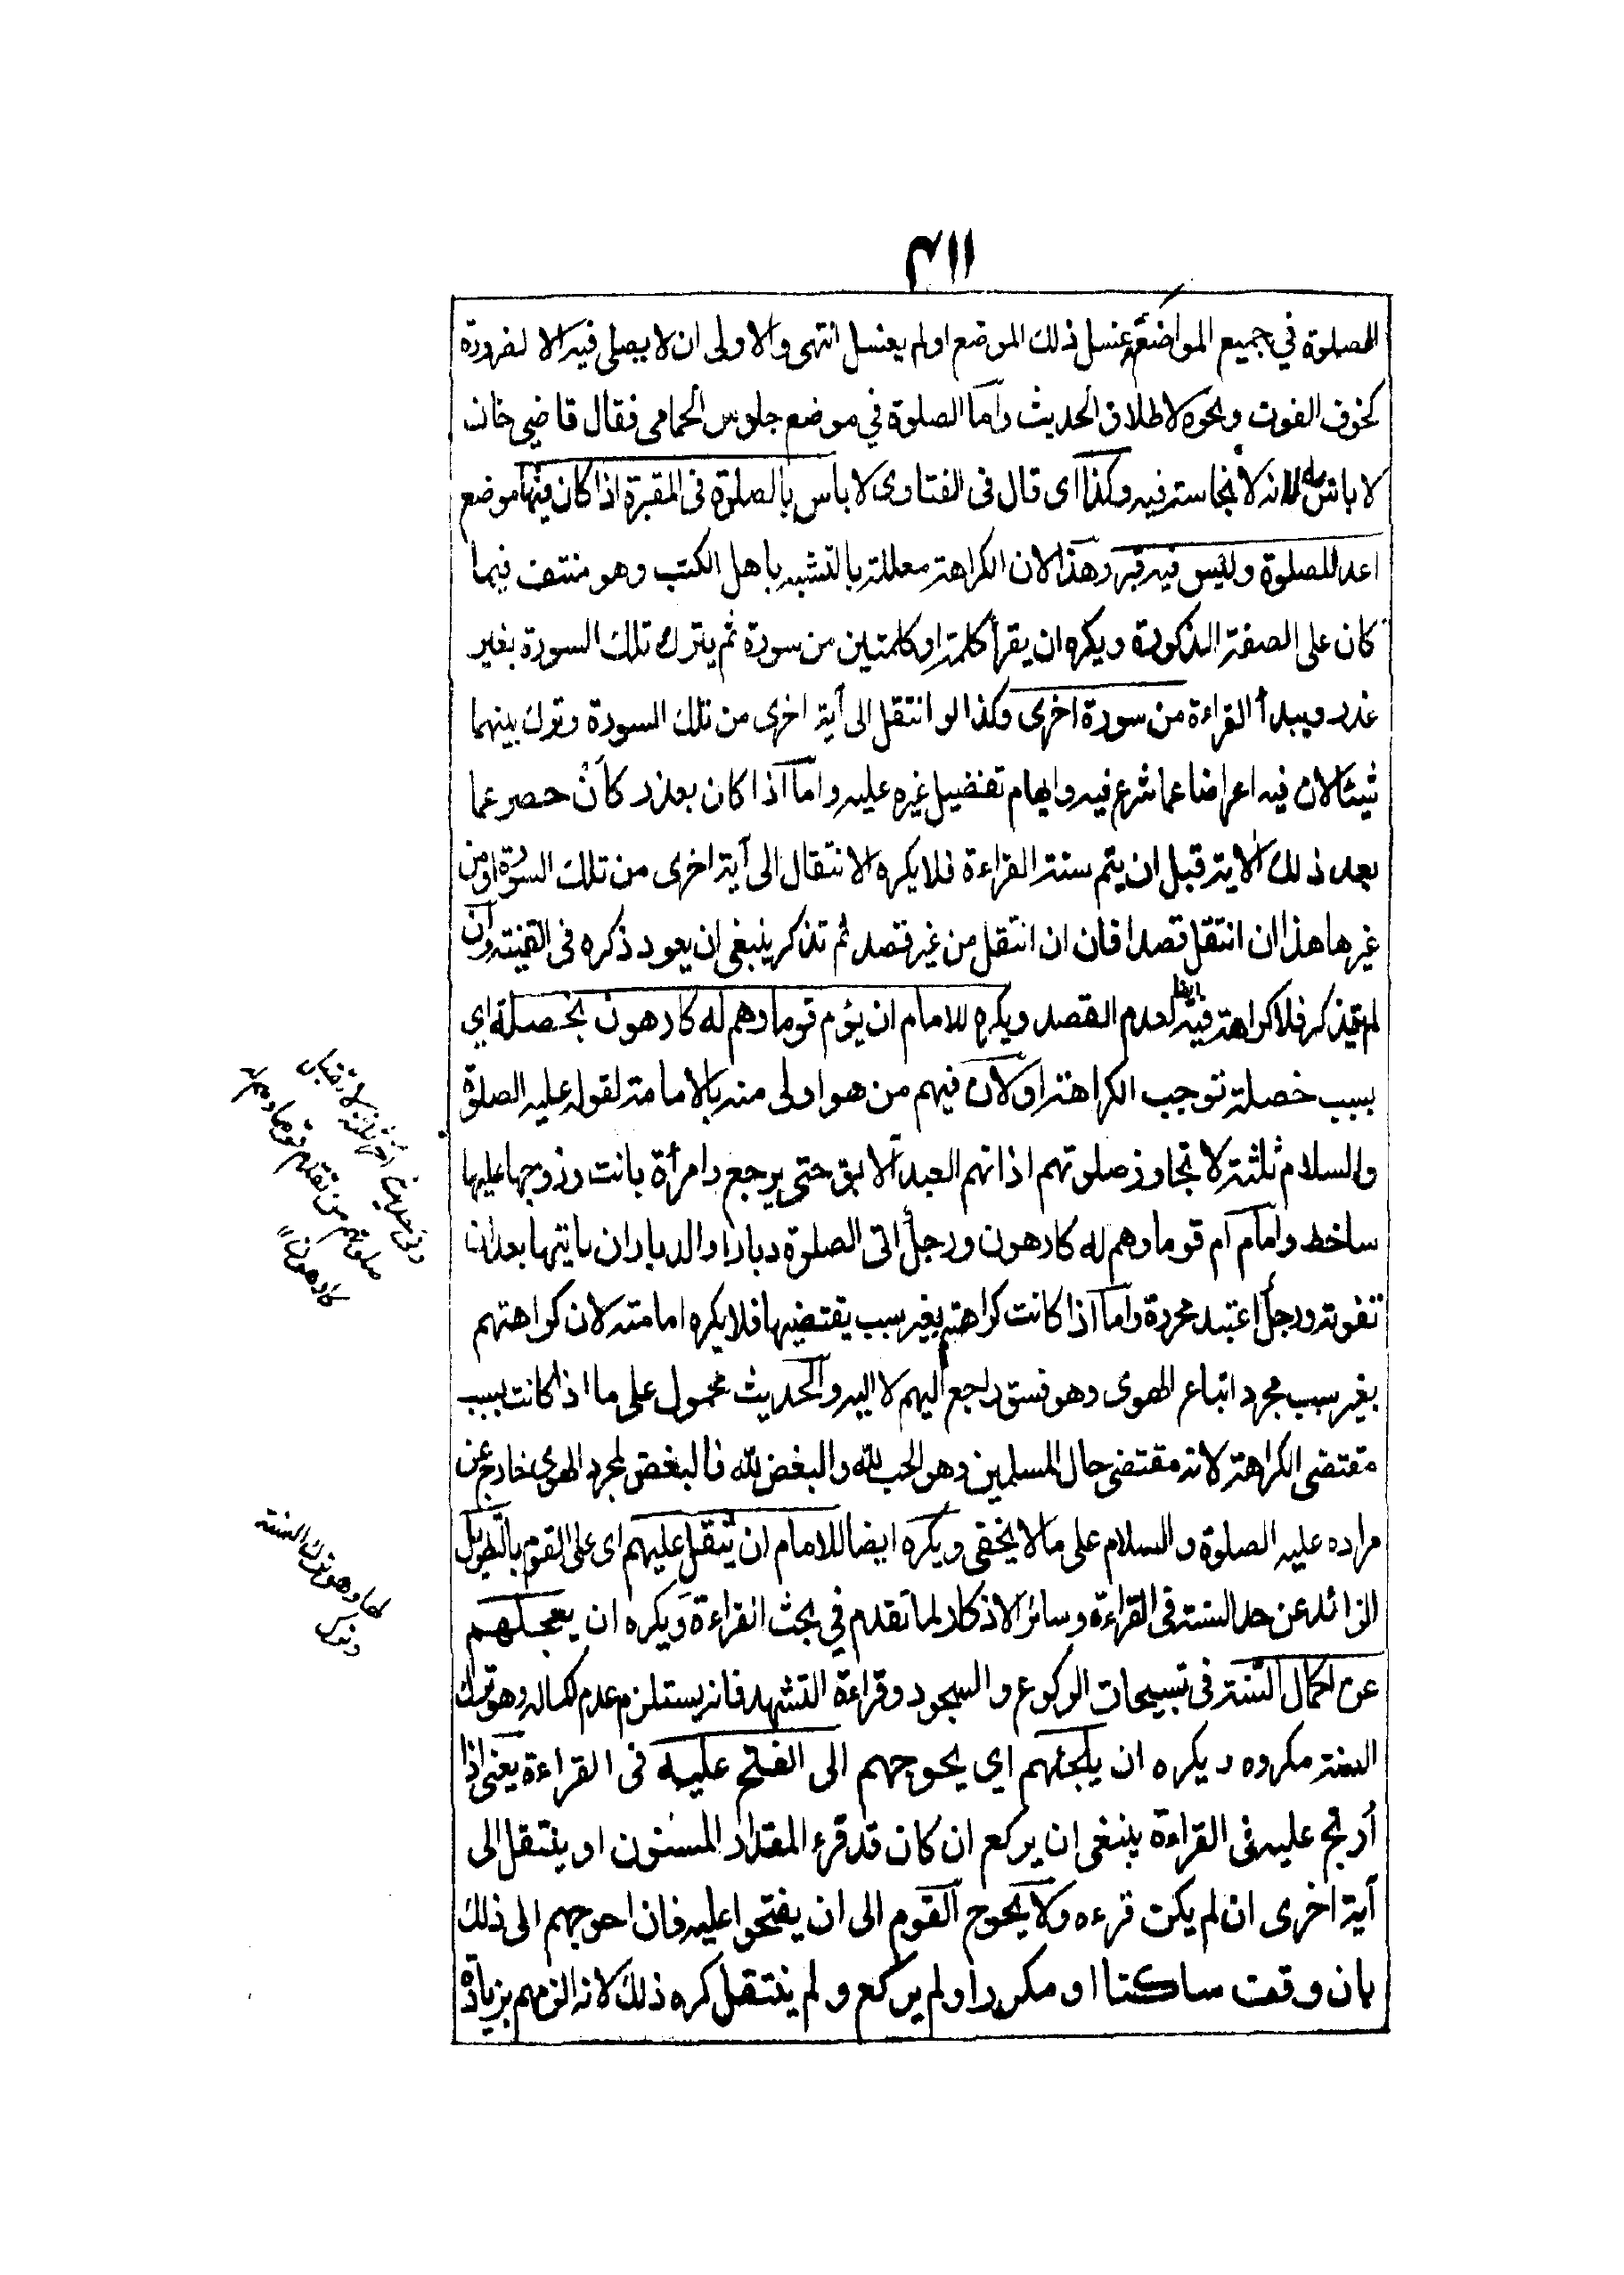 ٣١١
الصلوة في جميع المواضع غسل ذلك الموضع اولم يغسل انتهى والاولى ان لا يصلى فيه الا لضرورة
كخوف الفوت ونحوه لاطلاق الحديث واما الصلوة في موضع جلوس الحمامى فقال قاضي خان
لا باس به لانه لا نجاسة فيه وكذا اى قال فى الفتاوى لا باس بالصلوة فى المقبرة اذا كان فيها موضع
اعد للصلوة وليس فيه قبر وهذا لان الكراهة معللة بالتشبه باهل الكتب وهو منتف فيما
كان على الصفة المذكورة ويكره ان يقرأ كلمة او كلمتين من سورة ثم يترك تلك السورة بغير
عذر ويبدأ القراءة من سورة اخرى وكذا لو انتقل الى آية اخرى من تلك السورة وترك بينهما
شيئا لان فيه اعراضا عما شرع فيه وايهام تفضيل غيره عليه واما اذا كان بعذر كأن حصر عما
بعد ذلك الاية قبل ان يتم سنة القراءة فلا يكره الانتقال الى آية اخرى من تلك السورة او من
غيرها هذا ان انتقل قصدا فان ان انتقل من غير قصد ثم تذكر ينبغى ان يعود ذكره فى القنية وان
لم يتذكر فلا كراهة فيه ايضا لعدم القصد ويكره للامام ان يؤم قوما وهم له كارهون بخصلة اي
بسبب خصلة توجب الكراهة او لان فيهم من هو اولى منه بالامامة لقوله عليه الصلوة
والسلام ثلثة لا تجاوز صلوتهم اذانهم العبد الابق حتى يرجع وامرأة باتت وزوجها عليها
ساخط وامام ام قوما وهم له كارهون ورجل اتى الصلوة دبارا والدبار ان ياتيها بعد ان
تفوته ورجل اعتبد محررة واما اذا كانت كراهتهم بغير سبب يقتضيها فلا يكره امامته لان كراهتهم
بغير سبب مجرد اتباع الهوى وهو فسق راجع اليهم لا اليه والحديث محمول على ما اذا كانت بسبب
مقتضى الكراهة لانه مقتضى حال المسلمين وهو الحب لله والبغض لله فالبغض لمجرد الهوى خارج عن
مراده عليه الصلوة والسلام على ما لا يخفى ويكره ايضا للامام ان يثقل عليهم اى على القوم بالتطويل
الزائد عن حد السنة فى القراءة وسائر الاذكار لما تقدم في بحث القراءة ويكره ان يعجلهم
عن اكمال السنة فى تسبيحات الركوع والسجود وقراءة التشهد فانه يستلزم عدم اكماله وهو ترك
السنة مكروه ويكره ان يلجئهم اي يحوجهم الى الفتح عليه فى القراءة يعنى اذا
أرتج عليه فى القراءة ينبغى ان يركع ان كان قد قرء المقدار المسنون او ينتقل الى
آية اخرى ان لم يكن قرءه ولا يحوج القوم الى ان يفتحوا عليه فان احوجهم الى ذلك
بان وقف ساكتا او مكررا ولم يركع ولم ينتقل كره ذلك لانه الزمهم بزيادة
وفى حديث آخر ثلثة لا تقبل
صلوتهم من تقدم قوما وهم له
كارهون
لها وهو ترك السنة